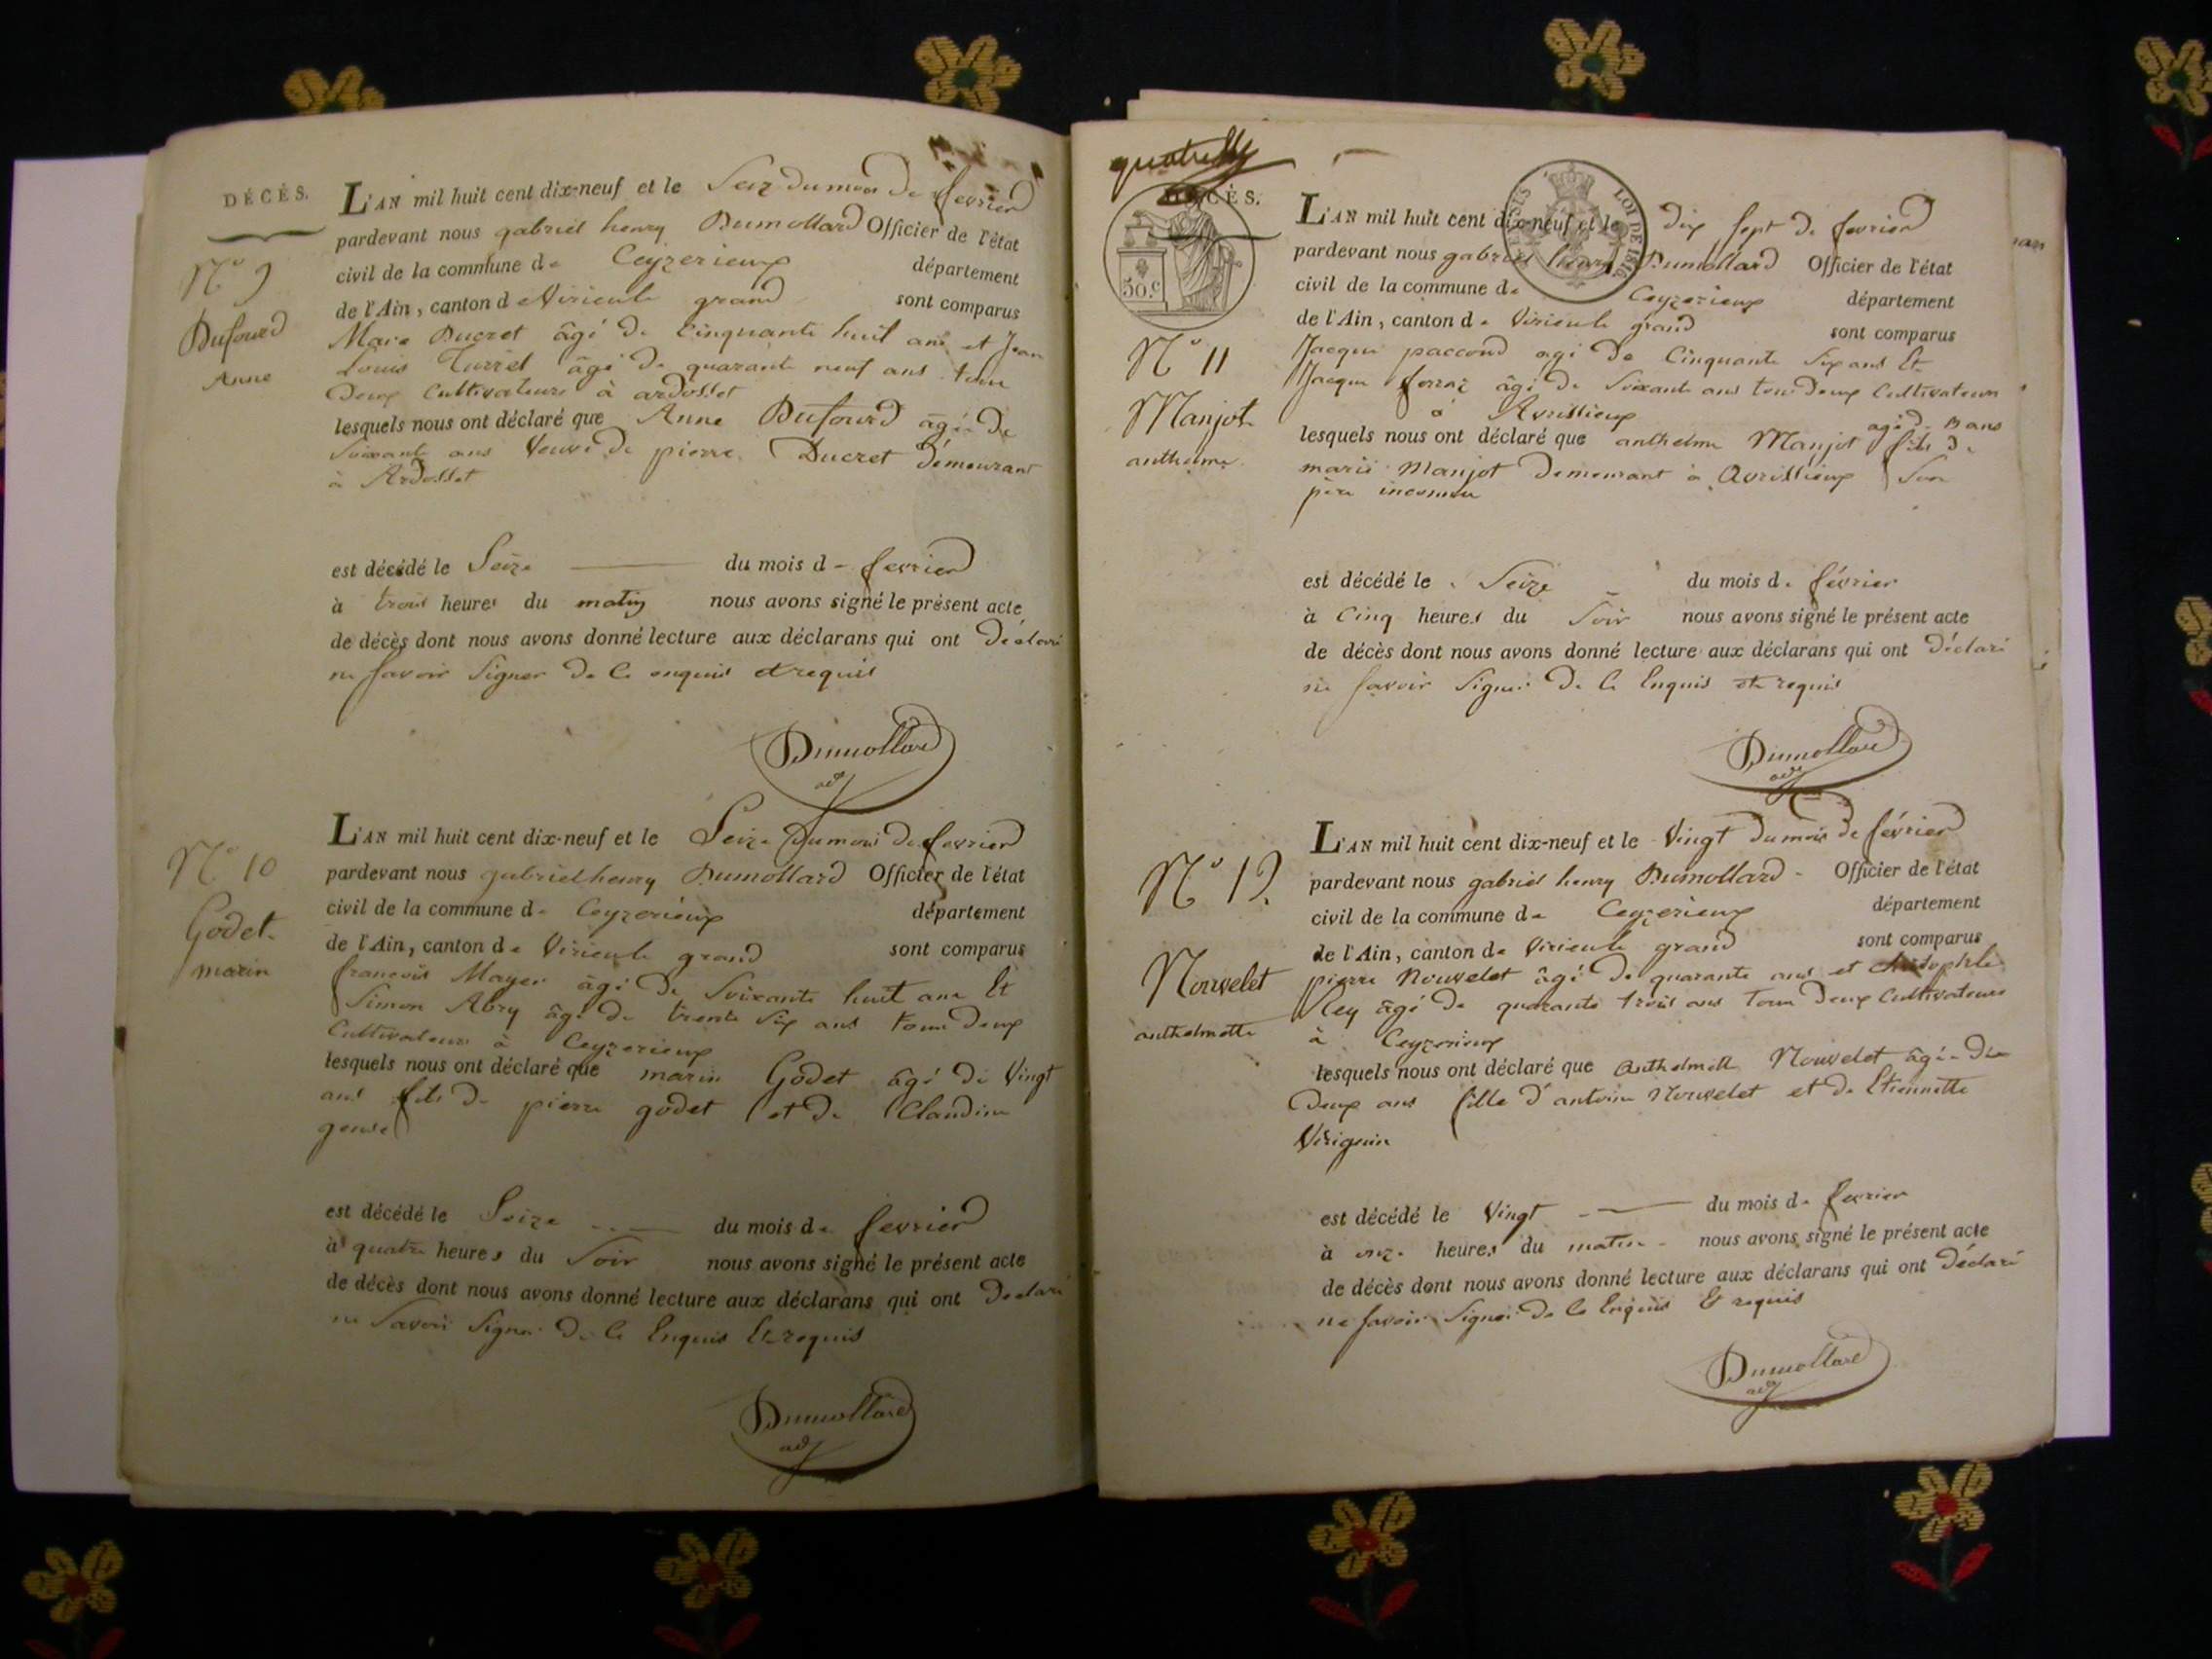 DÉCÈS.
L'AN mil huit cent dix-neuf et le Seiz du mois de fevrier
pardevant nous gabriel henry Dumollard Officier de l'état
civil de la commune de Ceyzerieux département
de l'Ain, canton de Virieule grand sont comparus
Marc Ducret âgé de Cinquante huit ans et Jean
Louis Turrel âgé de quarante neuf ans tous
Deux Cultivateurs à ardosset
lesquels nous ont déclaré que Anne Dufourd âgée De
Soixante ans Veuve De pierre Ducret Demeurant
à Ardosset
N° 9
Dufourd
Anne
est décédé le Seize du mois de fevrier
à trois heures du matin nous avons signé le présent acte
de décès dont nous avons donné lecture aux déclarans qui ont Déclaré
ne savoir Signer De ce enquis et requis
Dumollard
adj
L'AN mil huit cent dix-neuf et le Seize Du mois De fevrier
pardevant nous gabriel henry Dumollard Officier de l'état
civil de la commune de Ceyzerieux département
de l'Ain, canton de Virieule grand sont comparus
francois Mayer âgé De Soixante huit ans Et
Simon Abry âgé de trente Six ans tous Deux
Cultivateurs à Ceyzerieux
lesquels nous ont déclaré que marin Godet âgé de Vingt
ans fils De pierre godet et de Claudine
N° 10
Godet
marin
est décédé le Seize du mois de fevrier
à quatre heures du Soir nous avons signé le présent acte
de décès dont nous avons donné lecture aux déclarans qui ont Declaré
ne Savoir Signer De ce Enquis Et requis
Dumollard
adj
DÉCÈS.
50.c
LOI DE 1816
L'AN mil huit cent dix-neuf et le dix sept de fevrier
pardevant nous gabriel henry Dumollard Officier de l'état
civil de la commune de Ceyzerieux département
de l'Ain, canton de Virieule grand sont comparus
Jacque paccoud agé De Cinquante Six ans Et
Jacque ferraz âgé De Soixante ans tous Deux Cultivateurs
à Avrissieux
agé de 13 ans
lesquels nous ont déclaré que anthelme Manjot fils De
marie Manjot Demeurant à Avrissieux Son
père inconnu
N° 11
Manjot
anthelme
est décédé le Seize du mois de février
à Cinq heures du Soir nous avons signé le présent acte
de décès dont nous avons donné lecture aux déclarans qui ont Déclaré
ne savoir Signer De ce Enquis et requis
Dumollard
adj
L'AN mil huit cent dix-neuf et le Vingt Du mois De février
pardevant nous gabriel henry Dumollard Officier de l'état
civil de la commune de Ceyzerieux département
de l'Ain, canton de Virieule grand sont comparus
pierre Nouvelet âgé De quarante ans et christophle
Rey âgé De quarante trois ans tous Deux Cultivateurs
à Ceyzerieux
lesquels nous ont déclaré que Anthelmette Nouvelet âgée De
Deux ans fille d'antoine Nouvelet et De Etiennette
Virignin
N° 12
Nouvelet
anthelmette
est décédé le Vingt du mois de fevrier
à onze heures du matin nous avons signé le présent acte
de décès dont nous avons donné lecture aux déclarans qui ont Déclaré
ne savoir Signer De ce Enquis Et requis
Dumollard
adj